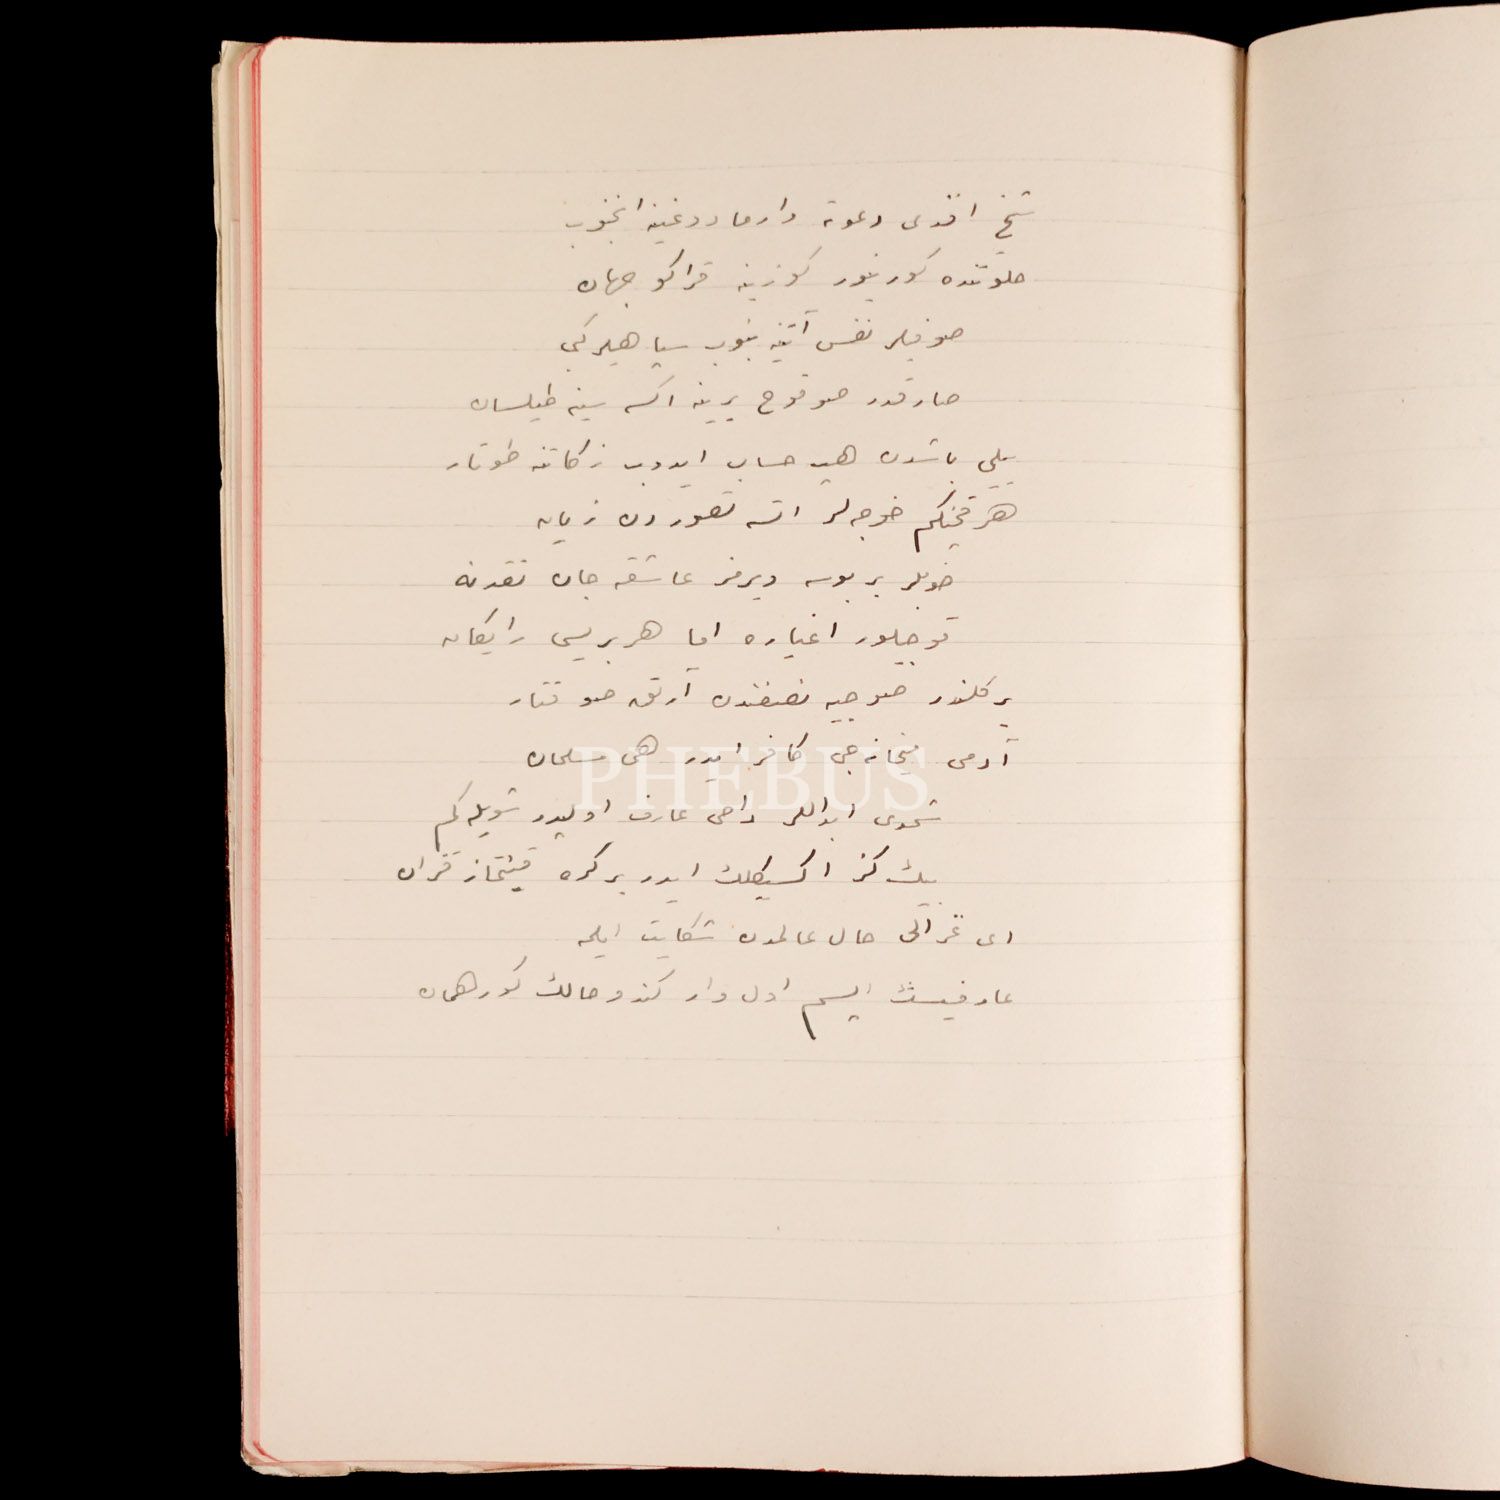 شیخ افندی دعوته وارمادوغینه انجنوب
خلوتنده كورینور كوزینه قراكو جهان
صوفیلر نفس آتینه بنوب سپاهیلر كبی
صارقدر صوقوج یرینه اكسه سینه طیلسان
ییلی باشدن هپ حساب ایدوب زكاتنه طوتار
هر قچنكم خوجه لر اتسه تصوردن زیان
خوبلر بر بوسه ویرمز عاشقه جان نقدنه
قوجیلور اغیاره اما هر بریسی رایكان
یر كلنور صوجیه نصفندن آرتق صو قتار
آدمی میخانه جی كافر ایدر هی مسلمان
شمدی ابداللر داخی عارف اولیدر شویله كم
بیك كز اكسیكلك ایدر بر كره قیتماز قران
ای غزالی حال عالمدن شكایت ایلمه
عارفیسك ایسم اول وار كندو حالك كور همان
PHEBUS